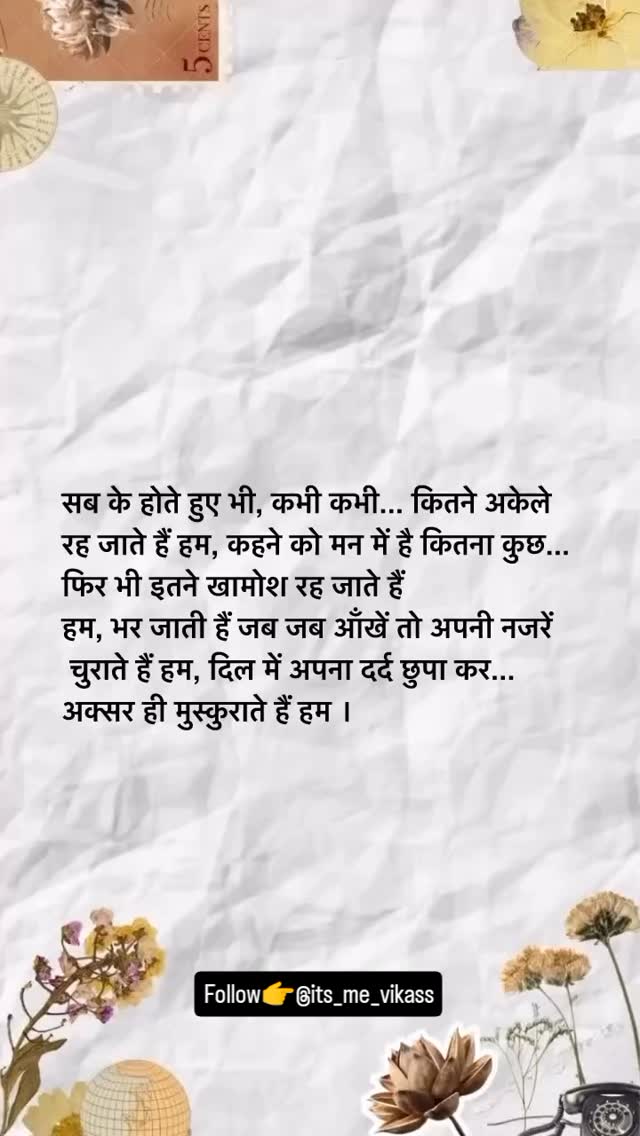 5 CENTS
सब के होते हुए भी, कभी कभी... कितने अकेले
रह जाते हैं हम, कहने को मन में है कितना कुछ...
फिर भी इतने खामोश रह जाते हैं
हम, भर जाती हैं जब जब आँखें तो अपनी नजरें
चुराते हैं हम, दिल में अपना दर्द छुपा कर...
अक्सर ही मुस्कुराते हैं हम ।
Follow👉@its_me_vikass